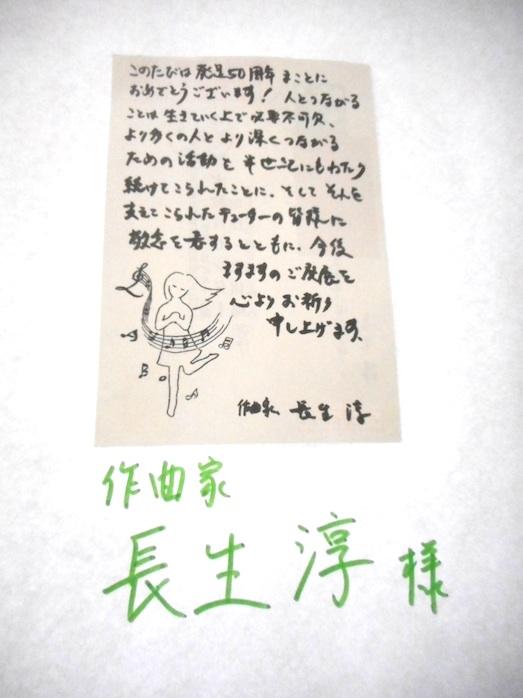 このたびは発足50周年 まことに
おめでとうございます! 人とつながる
ことは 生きていく上で 必要不可欠、
より多くの人と より深くつながる
ための 活動を 半世紀にもわたり
続けてこられたことに、そして それを
支えてこられたチューターの皆様に
敬意を表するとともに、今後
ますますの ご発展を
心より お祈り
申し上げます。
作曲家 長生 淳
作曲家
長生 淳 様